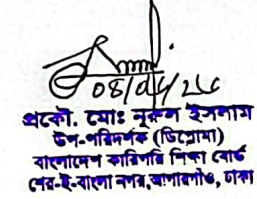 প্রকৌ. মোঃ নূরুল ইসলাম
উপ-পরিদর্শক (ডিপ্লোমা)
বাংলাদেশ কারিগরি শিক্ষা বোর্ড
শের-ই-বাংলা নগর, আগারগাঁও, ঢাকা